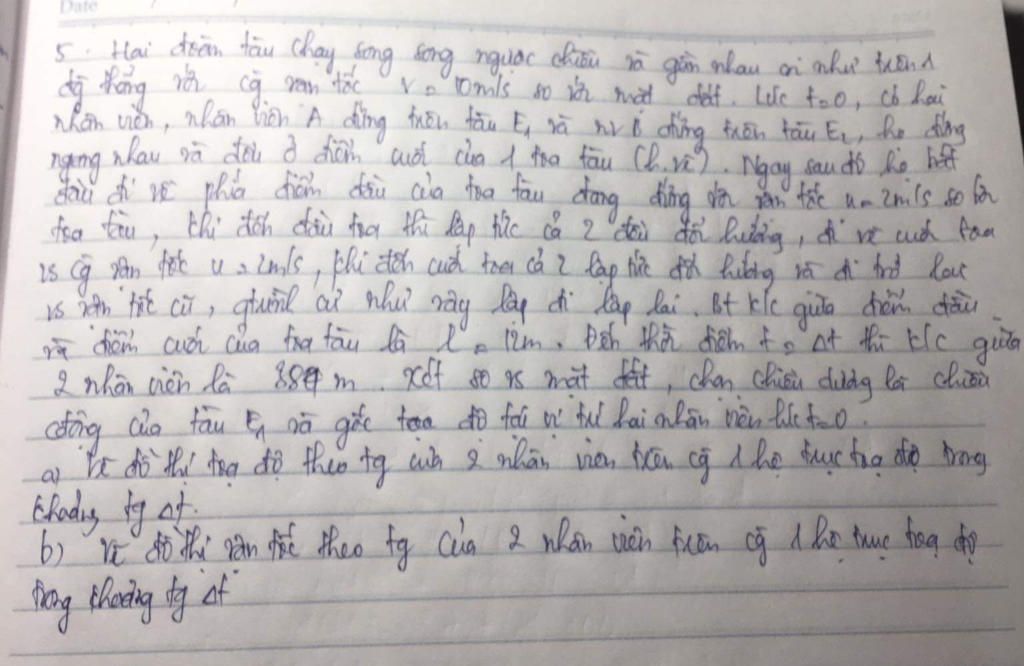 Date
5. Hai đoàn tàu chạy song song ngược chiều và gần nhau coi như trên 1
đg thẳng với cg vận tốc v = 10m/s so với mặt đất. Lúc t=0, có hai
nhân viên, nhân viên A đứng trên tàu E₁ và nv B đứng trên tàu E₂, họ đứng
ngang nhau và đều ở điểm cuối của 1 toa tàu (h.vẽ). Ngay sau đó họ bắt
đầu đi về phía điểm đầu của toa tàu đang đứng với vận tốc u = 2m/s so với
toa tàu, khi đến đầu toa thì lập tức cả 2 đều đổi hướng, đi về cuối toa
vs cg vận tốc u = 2m/s, khi đến cuối toa cả 2 lập tức đổi hướng và đi trở lại
vs vận tốc cũ, quá trình cứ như vậy lặp đi lặp lại. Bt k/c giữa điểm đầu
và điểm cuối của toa tàu là l = 12m. Đến thời điểm t = Δt thì k/c giữa
2 nhân viên là m. Xét so vs mặt đất, chọn chiều dương là chiều
cđộng của tàu E₁ và gốc toạ độ tại vị trí hai nhân viên lúc t=0.
a) Vẽ đồ thị toạ độ theo tg của 2 nhân viên trên cg 1 hệ trục toạ độ trong
khoảng tg Δt.
b) Vẽ đồ thị vận tốc theo tg của 2 nhân viên trên cg 1 hệ trục toạ độ
trong khoảng tg Δt